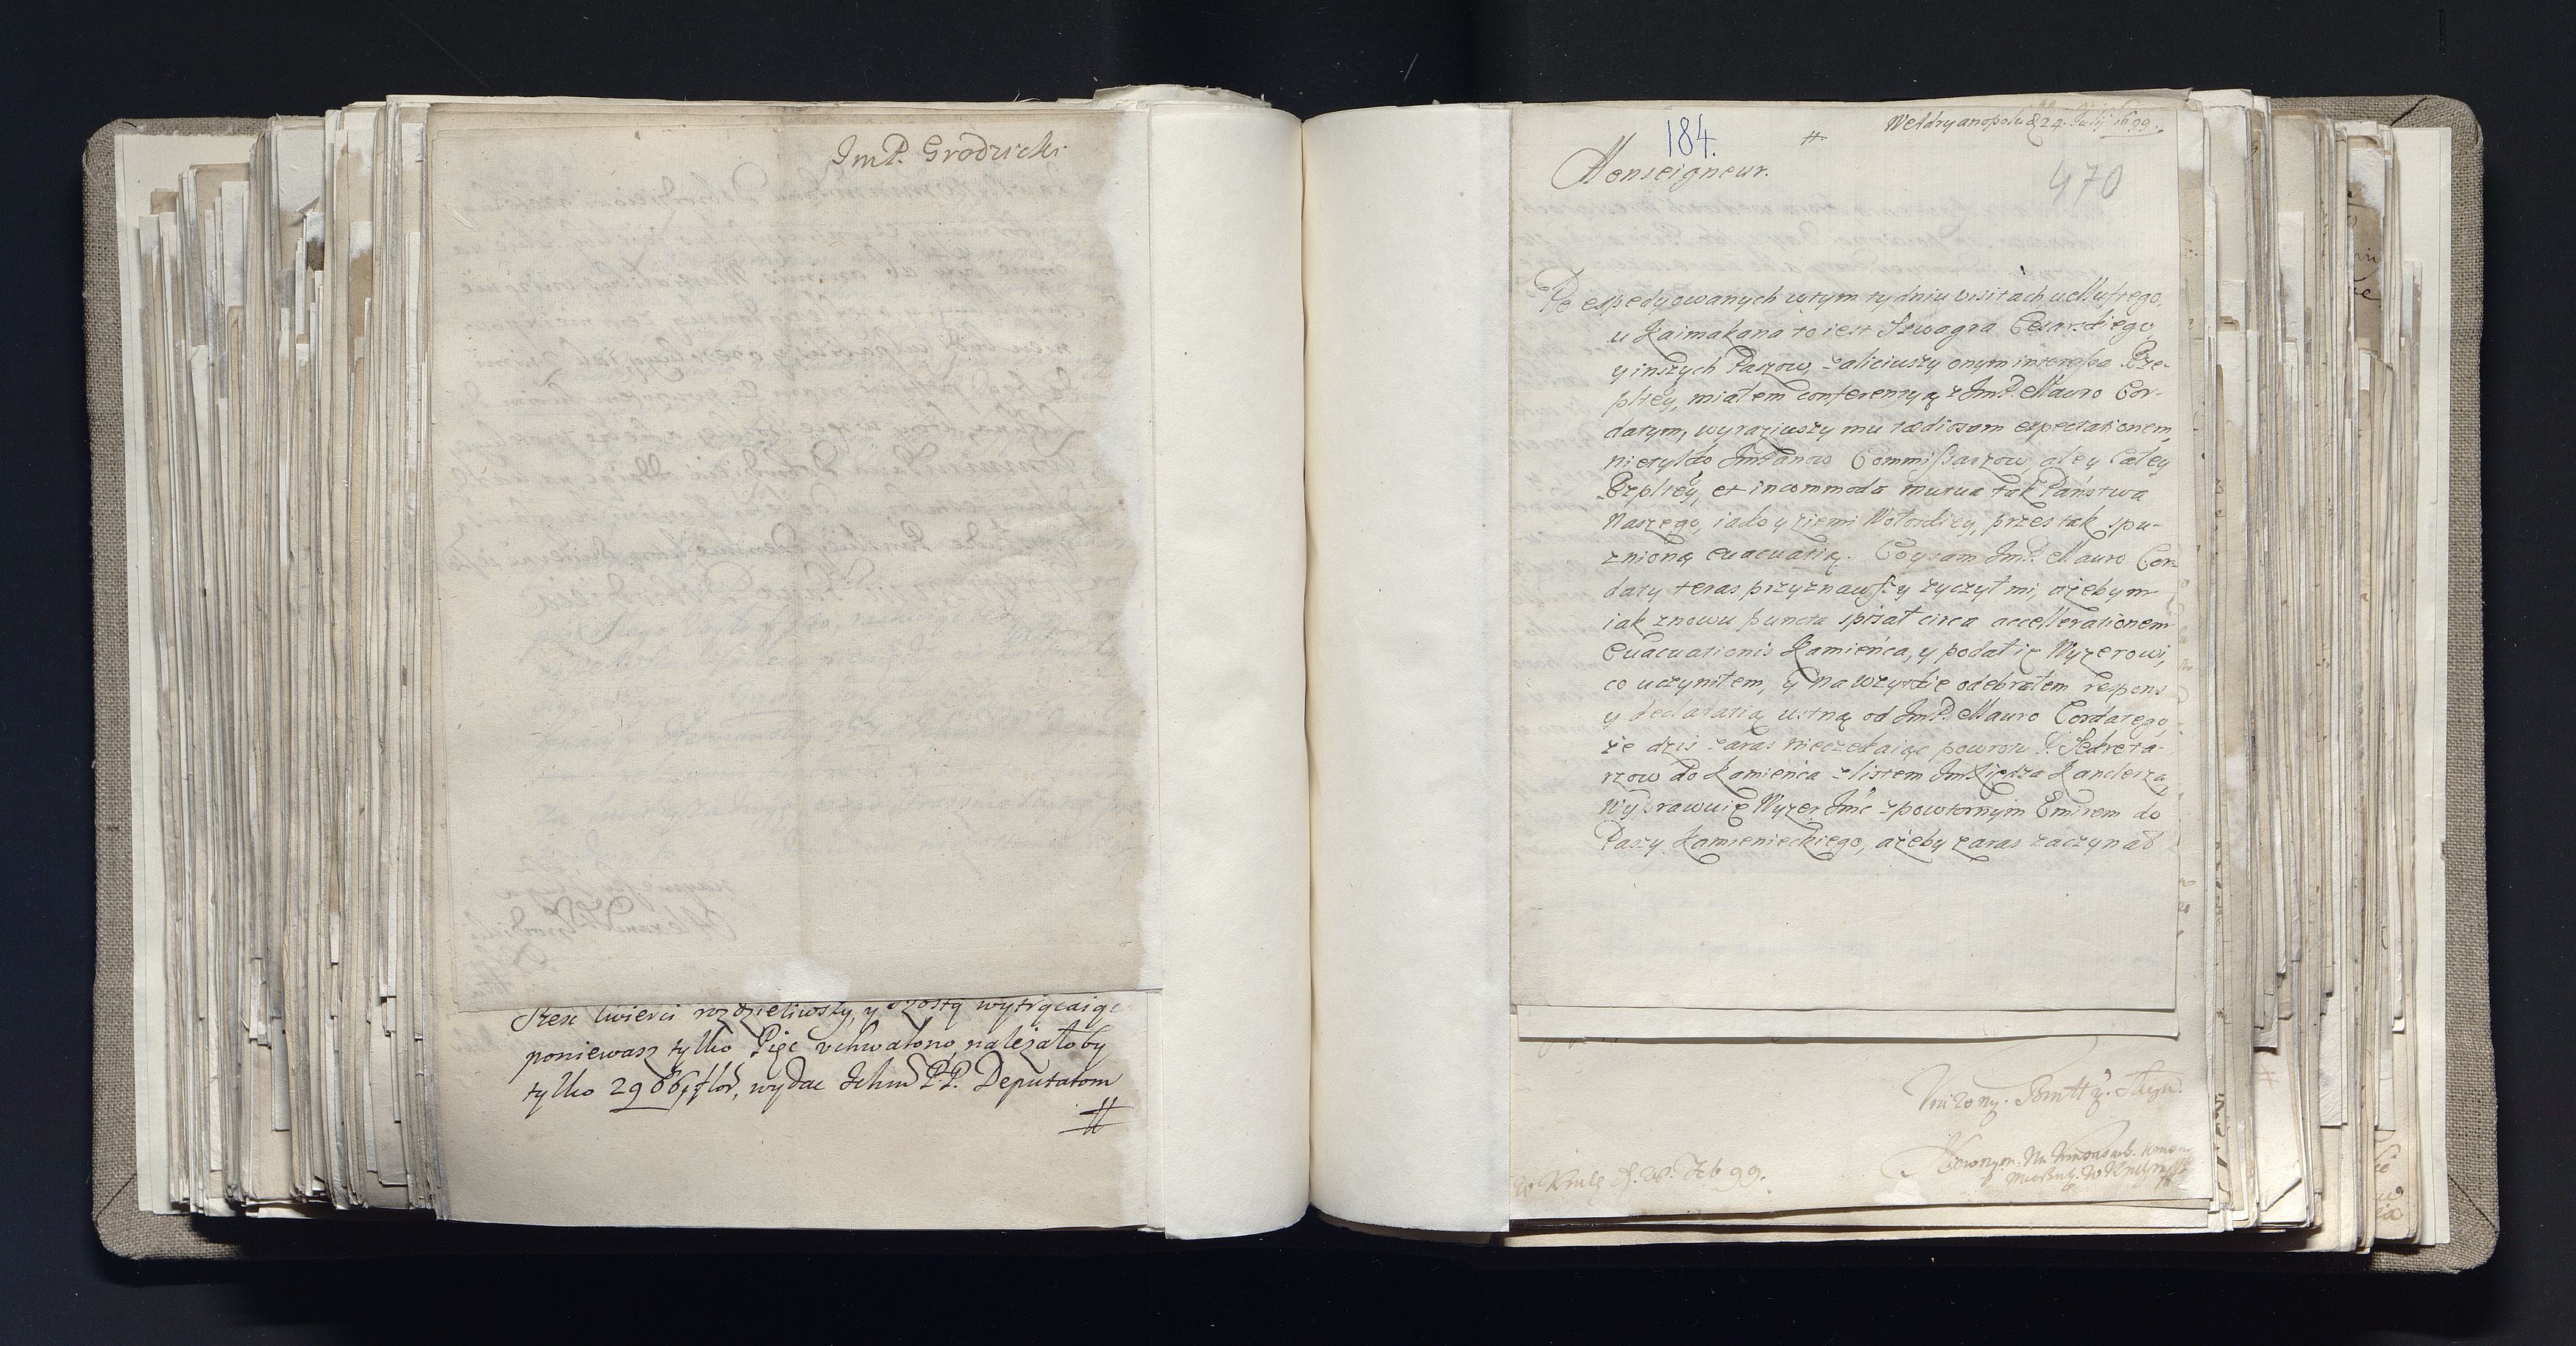 ImP. Grodzicki
Szesc cwierci rozdzieliwszy, y szostą wytrącaiąc
poniewasz tylko Pięc vchwalono, należałoby
tylko 2966 flor, wydac Ichm P.P. Deputatom
#
184.
#
W Adryanopolu d 24. Julij 1699.
Monseigneur.
470
Po expedyowanych wtym tydniu visitach u Muftego,
u Kaimakana to iest Szwagra Cesarskiego
y inszych Paszow, zaliciwszy onym interessa Rze-
pltey, miałem conferencyą z ImP. Mauro Cor-
datym, wyraziwszy mu tædiosam expectationem,
nietylko ImPanow Commissarzow, ale y całey
Rzpltey, et incommoda mutua tak Państwa
naszego, iako y ziemi Wołoskiey, przes tak spu-
znioną euacuatią. Co y sam ImP. Mauro Cor-
daty teras przyznawszy zyczył mi, ażebym
iak znowu puncta spisał circa accellerationem
Euacuationis Kamieńca, y podał ie Wyzerowi,
co uczyniłem, y na wszystkie odebrałem respons
y declaratią ustną od ImP. Mauro Cordatego,
że dzis zaras nieczekaiąc powrotu P. Sekreta-
rzow do Kamieńca z listem ImXiędza Kanclerza,
Wyprawuie Wyzer Imć z powtornym Emirem do
Paszy Kamienieckiego, ażeby zaras zaczynał
99.